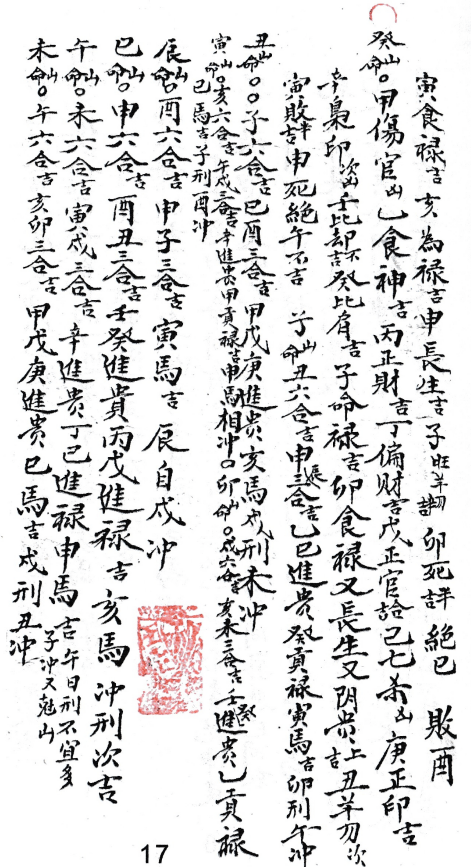 寅食禄吉亥為禄吉申長生吉子旺羊刃 卯死 絕巳 敗酉
癸山命○甲傷官凶乙食神吉丙正財吉丁偏財吉戊正官 己七杀凶庚正印吉
辛梟印次凶壬比却不吉癸比肩吉子命禄吉卯食禄又長生又阴贵上吉丑羊刃次
寅敗 吉申死絕午不吉 子山命丑六合吉申辰三合吉乙巳進贵癸貢禄寅馬吉卯刑午冲
丑山命○○子六合吉巳酉三合吉甲戊庚進贵亥馬戌刑未冲
寅山命○亥六合吉午戌三合吉辛進贵甲貢禄吉申馬相冲○卯山命○戌六合吉亥未三合吉壬癸進贵乙貢禄
巳馬吉子刑酉冲
辰山命○酉六合吉申子三合吉寅馬吉 辰自戌冲
巳山命○申六合吉酉丑三合吉壬癸進貴丙戊進禄吉亥馬冲刑次吉
午山命○未六合吉寅戌三合吉辛進贵丁己進禄申馬吉午日刑不宜多
子冲又尅山
未山命○午六合吉亥卯三合吉甲戊庚進贵巳馬吉戌刑丑冲
17